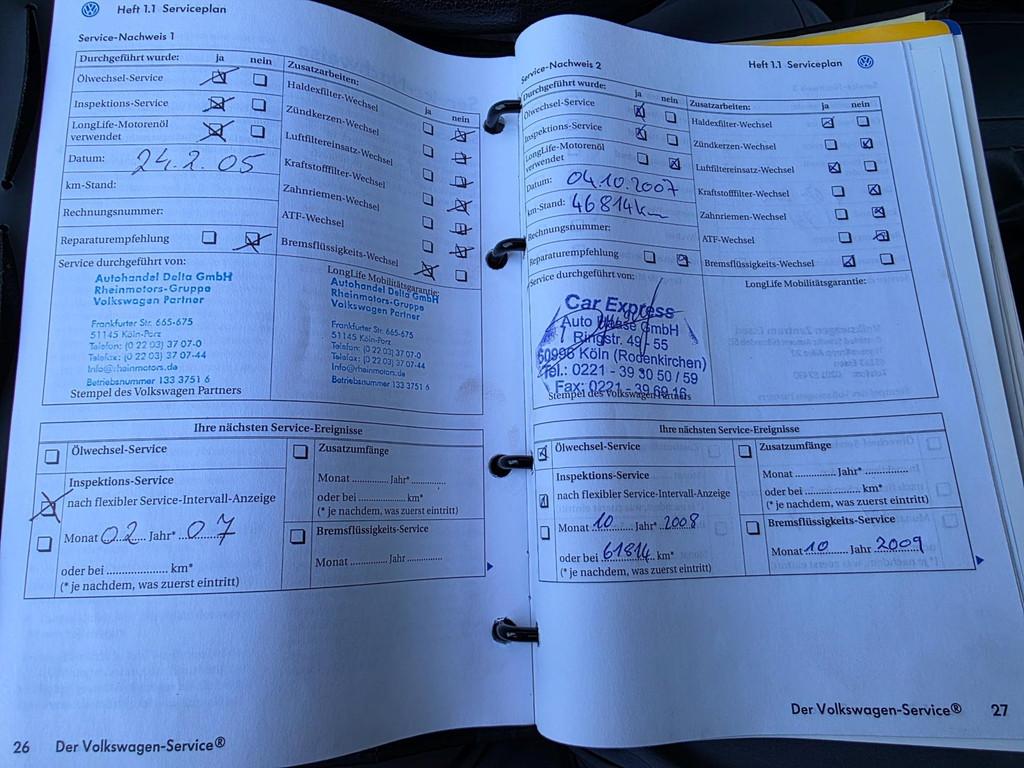 Heft 1.1 Serviceplan
Service-Nachweis 1
Durchgeführt wurde: ja nein
Ölwechsel-Service
Inspektions-Service
LongLife-Motorenöl
verwendet
Datum: 24.2.05
km-Stand:
Rechnungsnummer:
Reparaturempfehlung
Zusatzarbeiten:
ja nein
Haldexfilter-Wechsel
Zündkerzen-Wechsel
Luftfiltereinsatz-Wechsel
Kraftstofffilter-Wechsel
Zahnriemen-Wechsel
ATF-Wechsel
Bremsflüssigkeits-Wechsel
Service durchgeführt von:
Autohandel Delta GmbH
Rheinmotors-Gruppe
Volkswagen Partner
Frankfurter Str. 665-675
51145 Köln-Porz
Telefon: (0 22 03) 37 07-0
Telefax: (0 22 03) 37 07-44
Info@rheinmotors.de
Betriebsnummer 133 3751 6
Stempel des Volkswagen Partners
LongLife Mobilitätsgarantie:
Autohandel Delta GmbH
Rheinmotors-Gruppe
Volkswagen Partner
Frankfurter Str. 665-675
51145 Köln-Porz
Telefon: (0 22 03) 37 07-0
Telefax: (0 22 03) 37 07-44
Info@rheinmotors.de
Betriebsnummer 133 3751 6
Ihre nächsten Service-Ereignisse
Ölwechsel-Service
Inspektions-Service
nach flexibler Service-Intervall-Anzeige
Monat 02 Jahr* 07
oder bei ................. km*
(* je nachdem, was zuerst eintritt)
Zusatzumfänge
Monat .......... Jahr* .............
oder bei ................. km*
(* je nachdem, was zuerst eintritt)
Bremsflüssigkeits-Service
Monat .......... Jahr .............
26 Der Volkswagen-Service®
Heft 1.1 Serviceplan
Service-Nachweis 2
Durchgeführt wurde: ja nein
Ölwechsel-Service
Inspektions-Service
LongLife-Motorenöl
verwendet
Datum: 04.10.2007
km-Stand: 46814km
Rechnungsnummer:
Reparaturempfehlung
Zusatzarbeiten: ja nein
Haldexfilter-Wechsel
Zündkerzen-Wechsel
Luftfiltereinsatz-Wechsel
Kraftstofffilter-Wechsel
Zahnriemen-Wechsel
ATF-Wechsel
Bremsflüssigkeits-Wechsel
Service durchgeführt von:
Car Express
Auto GmbH
Ringstr. 49 - 55
50996 Köln (Rodenkirchen)
Tel.: 0221 - 39 30 50 / 59
Fax: 0221 - 39 69 16
Stempel des Volkswagen Partners
LongLife Mobilitätsgarantie:
Ihre nächsten Service-Ereignisse
Ölwechsel-Service
Inspektions-Service
nach flexibler Service-Intervall-Anzeige
Monat 10 Jahr* 2008
oder bei 61814 km*
(* je nachdem, was zuerst eintritt)
Zusatzumfänge
Monat .......... Jahr* .............
oder bei ................. km*
(* je nachdem, was zuerst eintritt)
Bremsflüssigkeits-Service
Monat 10 Jahr 2009
Der Volkswagen-Service® 27